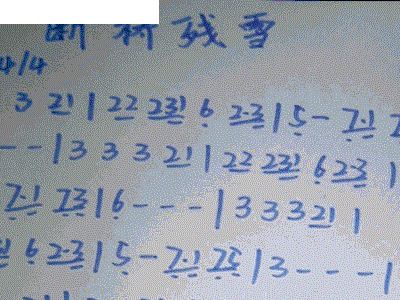 断桥残雪
4/4
3 21 | 22 231 6 2·3 | 5 - 7·1
- - | 3 3 3 21 | 22 231 6 23 |
7·1 73 | 6 - - - | 3 3 3 21 |
6 2·3 | 5 - 7·1 75 | 3 - - - |